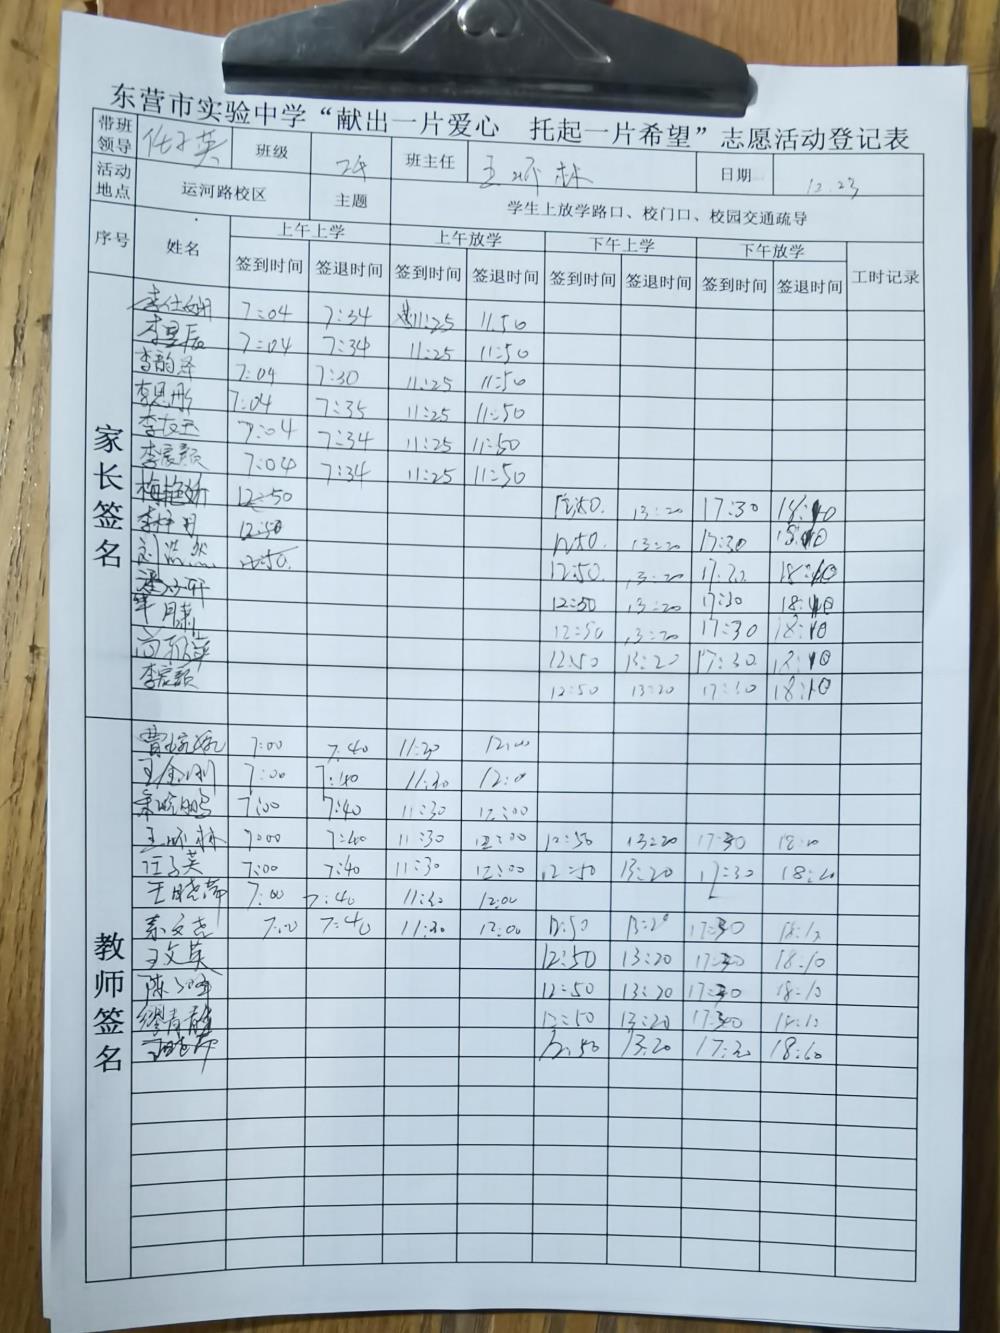 东营市实验中学“献出一片爱心 托起一片希望”志愿活动登记表
带班领导 任子英 班级 班主任 王环林 日期 12.23
活动地点 运河路校区 主题 学生上放学路口、校门口、校园交通疏导
序号 姓名 上午上学 上午放学 下午上学 下午放学 工时记录
签到时间 签退时间 签到时间 签退时间 签到时间 签退时间 签到时间 签退时间
家长签名
李仕妍 7:04 7:34 11:25 11:50
李昱辰 7:04 7:34 11:25 11:50
李韵泽 7:04 7:30 11:25 11:50
李思彤 7:04 7:35 11:25 11:50
7:04 7:34 11:25 11:50
李宸颢 7:04 7:34 11:25 11:50
梅艳娇 12:50 12:50 13:20 17:30 18:10
12:50 12:50 13:20 17:30 18:10
刘浩然 12:50 12:50 13:20 17:30 18:10
12:50 13:20 17:30 18:10
12:50 13:20 17:30 18:10
12:50 13:20 17:30 18:10
李宸颢 12:50 13:20 17:30 18:10
教师签名
7:00 7:40 11:30 12:00
王金刚 7:00 7:40 11:30 12:00
秦晓鹏 7:00 7:40 11:30 12:00
王环林 7:00 7:40 11:30 12:00 12:50 13:20 17:30 18:10
任子英 7:00 7:40 11:30 12:00 12:50 13:20 17:30 18:10
王晓萍 7:00 7:40 11:30 12:00
秦文尧 7:00 7:40 11:30 12:00 12:50 13:20 17:30 18:10
王文英 12:50 13:20 17:30 18:10
12:50 13:20 17:30 18:10
缪青静 12:50 13:20 17:30 18:10
王晓萍 12:50 13:20 17:30 18:10